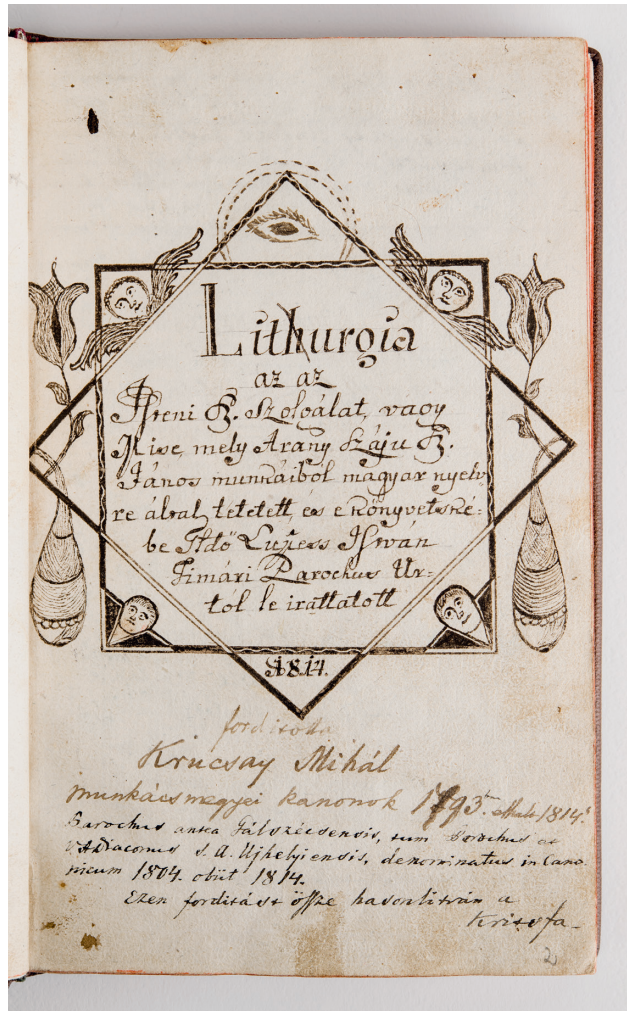 Lithurgia
az az
Isteni Sz. Szolgálat, vagy
Mise, mely Arany Száju Sz.
János munkáiból magyar nyelv-
re által tétetett, és e könyvetské-
be Fldő Lupess István
Timári Parochus Ur-
tól le irattatott
1814.
fordította
Krucsay Mihál
munkácsmegyei kanonok 1793. 1814.
Parochus antea Gálszécsensis, tum Parochus et
VADiaconus S. A. Ujhelyiensis, denominatus in Cano-
nicum 1804. obiit 1814.
Ezen forditást össze hasonlitván a
Krisfa-
2